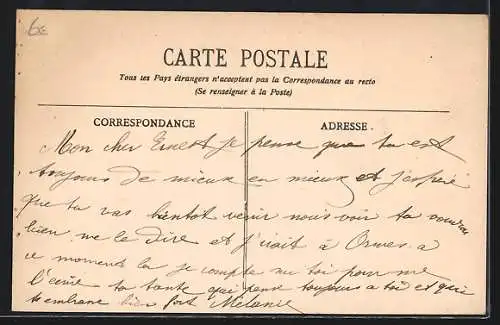 6€
CARTE POSTALE
Tous les Pays étrangers n'acceptent pas la Correspondance au recto
(Se renseigner à la Poste)
CORRESPONDANCE
ADRESSE
Mon cher Ernest je pense que tu est
toujours de mieux en mieux et j'espère
que tu vas bientot venir nous voir tu voudras
bien me le dire et j'irait à Ormes a
ce moments la je compte sur toi pour me
l'écrire ta tante qui pense toujours a toi et qui
t'embrasse bien fort Mélanie